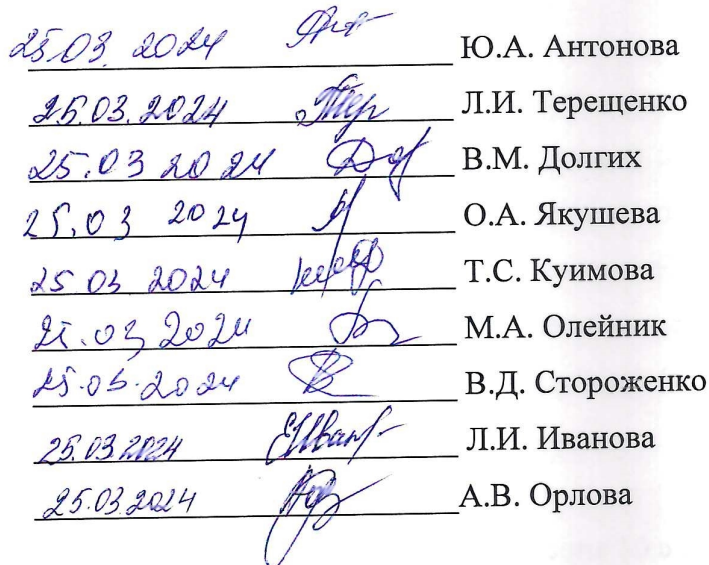 25.03. 2024 Ю.А. Антонова
25.03.2024 Л.И. Терещенко
25.03 2024 В.М. Долгих
25.03 2024 О.А. Якушева
25 03 2024 Т.С. Куимова
25.03 2024 М.А. Олейник
25.03.2024 В.Д. Стороженко
25.03.2024 Л.И. Иванова
25.03.2024 А.В. Орлова